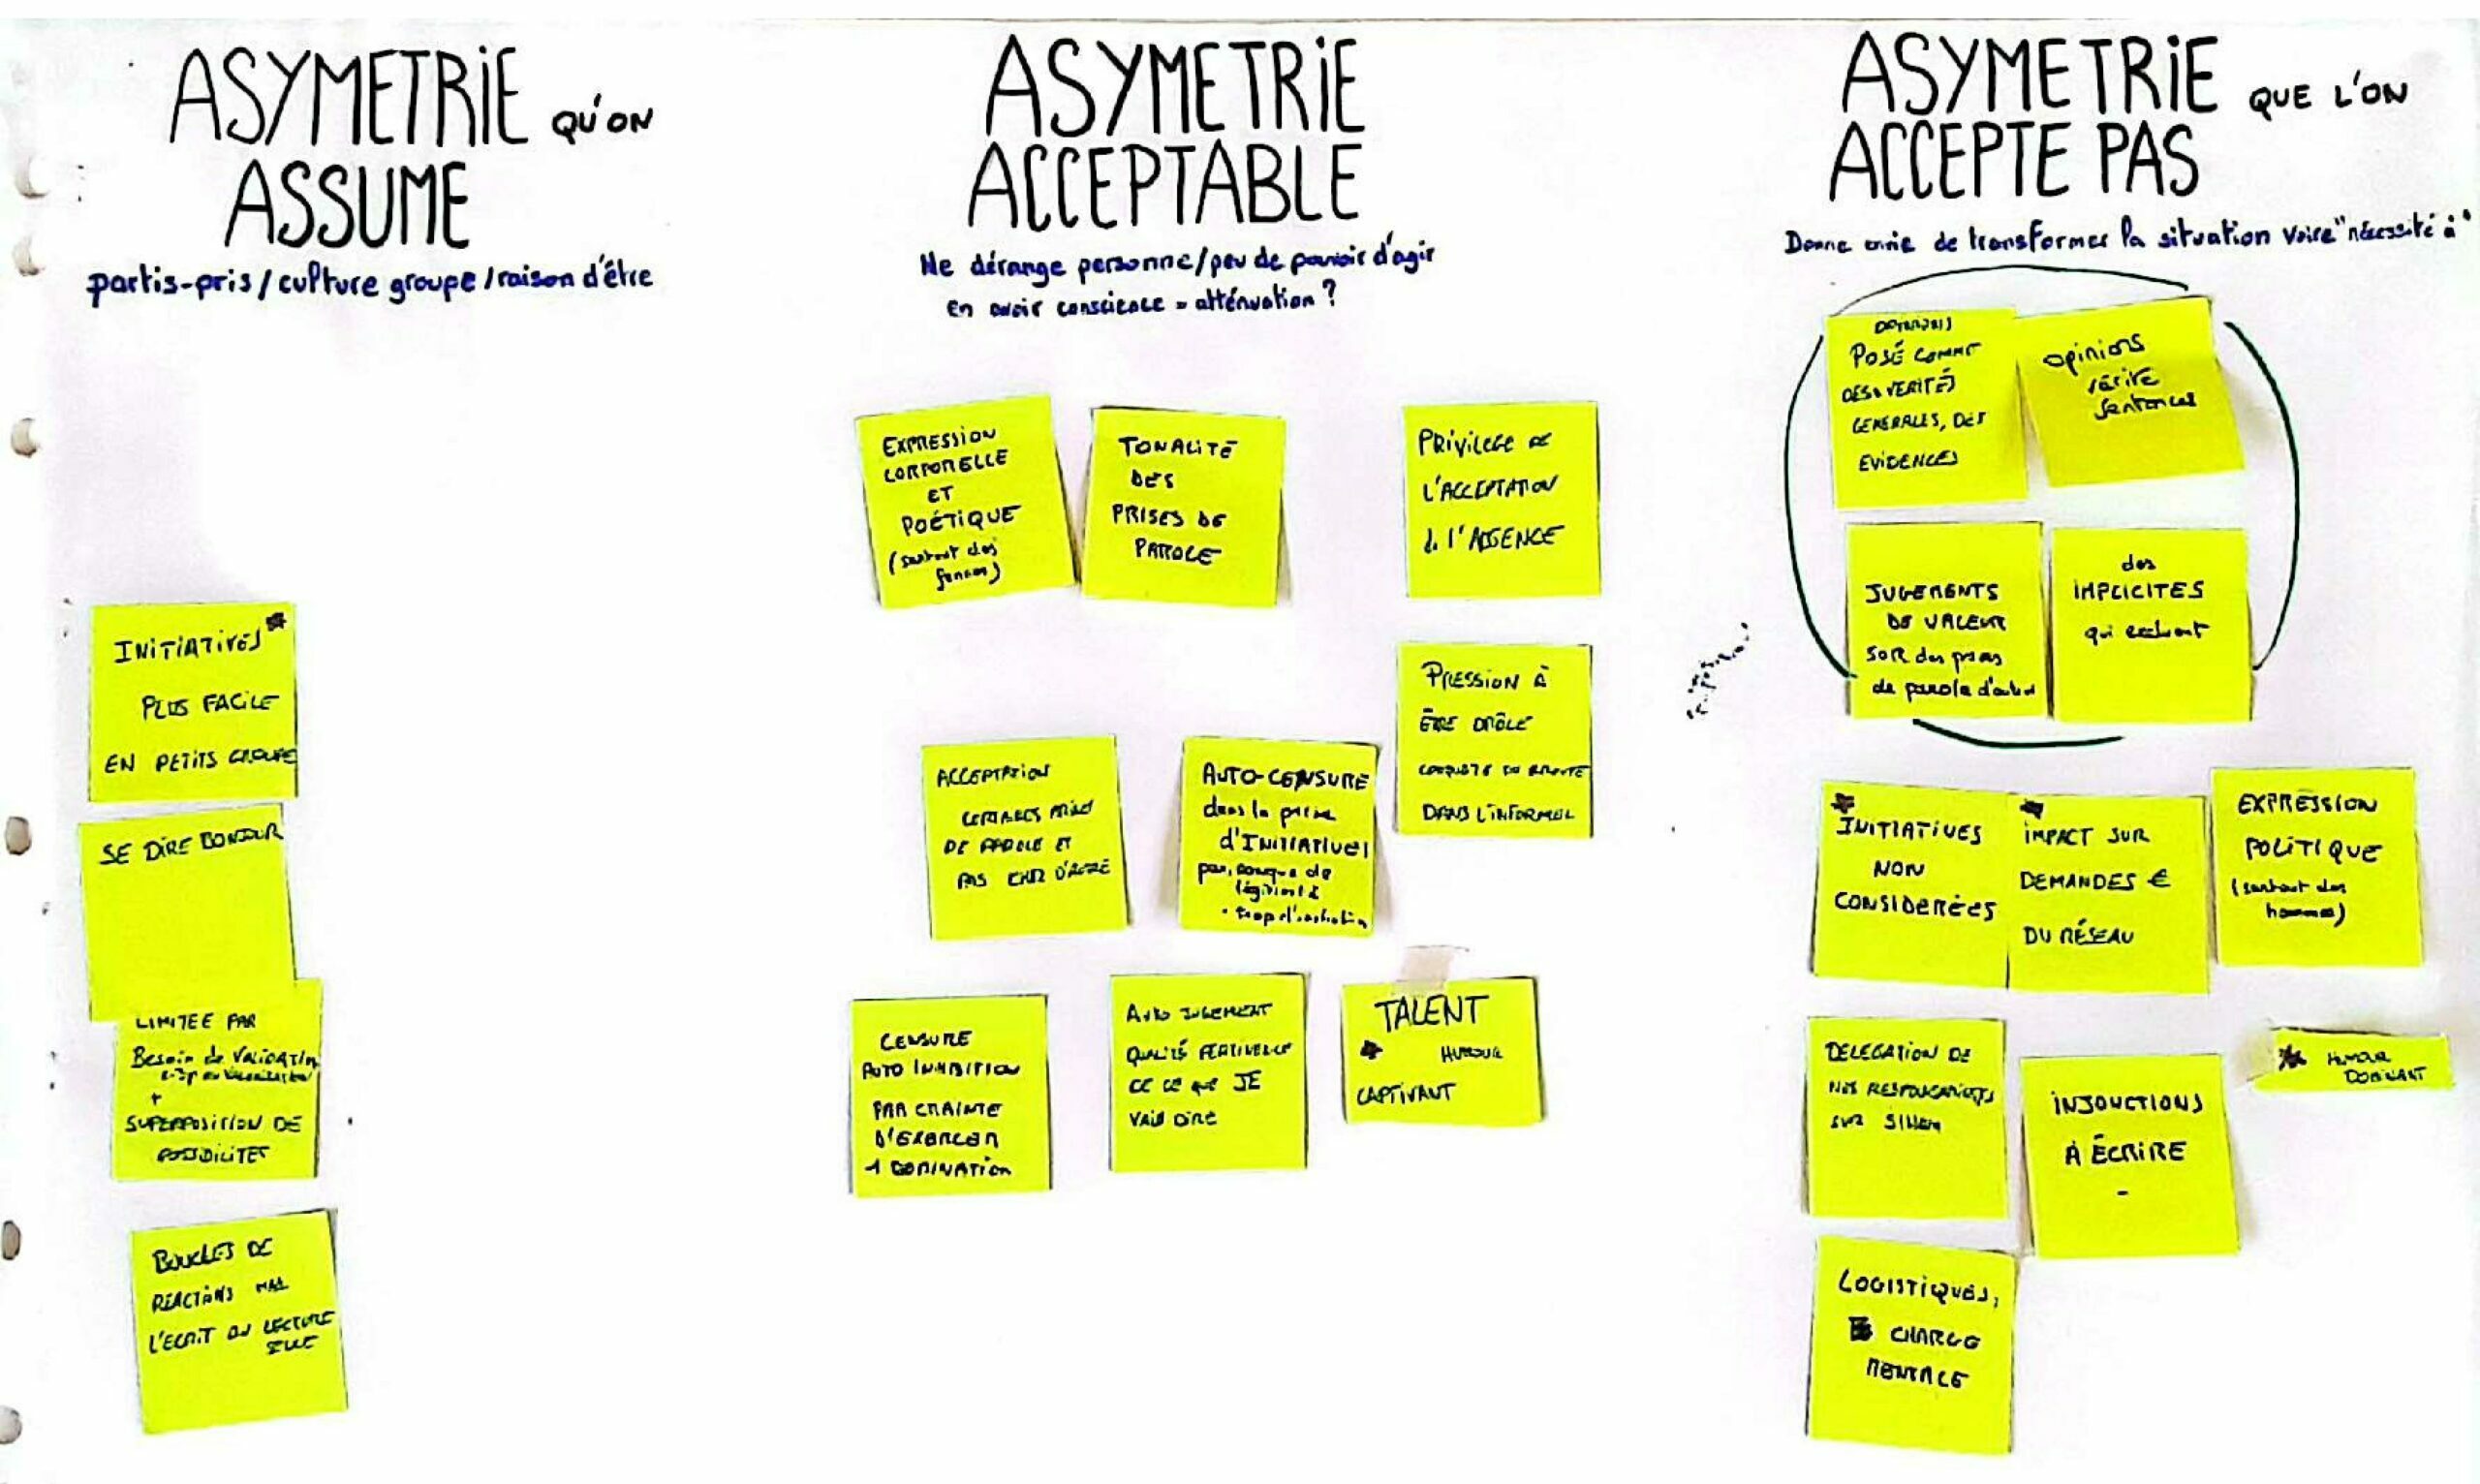 ASYMETRIE QU'ON
ASSUME
partis-pris / culture groupe / raison d'être
INITIATIVES
PLUS FACILE
EN PETITS GROUPE
SE DIRE BONJOUR
LIMITEE PAR
Besoin de VALIDATION
+
SUPERPOSITION DE
POSSIBILITES
BOUCLES DE
REACTIONS
L'ECRIT OU LECTURE
SEULE
ASYMETRIE
ACCEPTABLE
Ne dérange personne / peu de pouvoir d'agir
En avoir conscience = atténuation ?
EXPRESSION
CORPORELLE
ET
POÉTIQUE
(surtout des
femmes)
TONALITÉ
DES
PRISES DE
PAROLE
PRIVILEGE DE
L'ACCEPTATION
de L'ABSENCE
PRESSION À
ÊTRE DRÔLE
DANS L'INFORMEL
ACCEPTATION
CERTAINES PRISES
DE PAROLE ET
PAS CHEZ D'AUTRE
AUTO-CENSURE
dans la prise
d'INITIATIVES
par manque de
légitimité
CENSURE
AUTO INHIBITION
PAR CRAINTE
D'EXERCER
1 DOMINATION
AUTO JUGEMENT
QUALITÉ
DE CE QUE JE
VAIS DIRE
TALENT
HUMOUR
CAPTIVANT
ASYMETRIE QUE L'ON
ACCEPTE PAS
Donne envie de transformer la situation voire "nécessité à"
POSÉ COMME
DES VERITÉS
GENERALES, DES
EVIDENCES
Opinions
vérité
Sentences
JUGEMENTS
DE VALEUR
SUR des prises
de parole d'autrui
des
IMPLICITES
qui excluent
INITIATIVES
NON
CONSIDERÉES
IMPACT SUR
DEMANDES €
DU RÉSEAU
EXPRESSION
POLITIQUE
(surtout des
hommes)
DELEGATION DE
NOS RESPONSABILITÉS
SUR
INJONCTIONS
À ÉCRIRE
-
HUMOUR
DOMINANT
LOGISTIQUES,
CHARGE
MENTALE